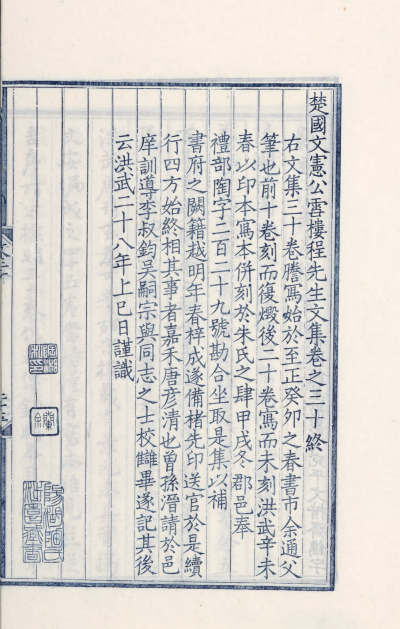 楚國文憲公雪樓程先生文集卷之三十終
右文集三十卷謄寫始於至正癸卯之春書市余通父
筆也前十卷刻而復燬後二十卷寫而未刻洪武辛未
春以印本寫本併刻於朱氏之肆甲戌冬郡邑奉
禮部陶字二百二十九號勘合坐取是集以補
書府之闕籍越明年春梓成遂備楮先印送官於是續
行四方始終相其事者嘉禾唐彥清也曾孫溍請於邑
庠訓導李叔鈞吳嗣宗與同志之士校讎畢遂記其後
云洪武二十八年上巳日謹識